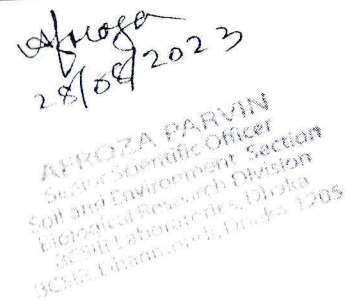 Afroza
28/08/2023
AFROZA PARVIN
Senior Scientific Officer
Soil and Environment Section
Biological Research Division
BCSIR Laboratories, Dhaka
BCSIR, Dhanmondi, Dhaka 1205